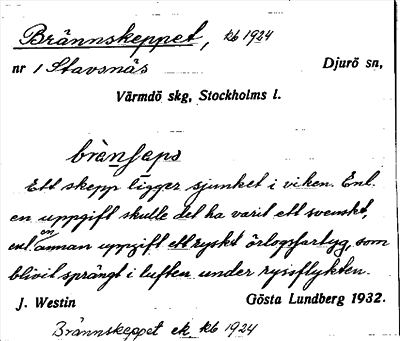 Brännskeppet, kb 1924
nr 1 Stavsnäs Djurö sn,
Värmdö skg, Stockholms l.
brànʃæps
Ett skepp ligger sjunket i viken. Enl.
en uppgift skulle det ha varit ett svenskt,
enl. en annan uppgift ett ryskt örlogsfartyg, som
blivit sprängt i luften under ryssflykten.
J. Westin Gösta Lundberg 1932.
Brännskeppet ek kb 1924